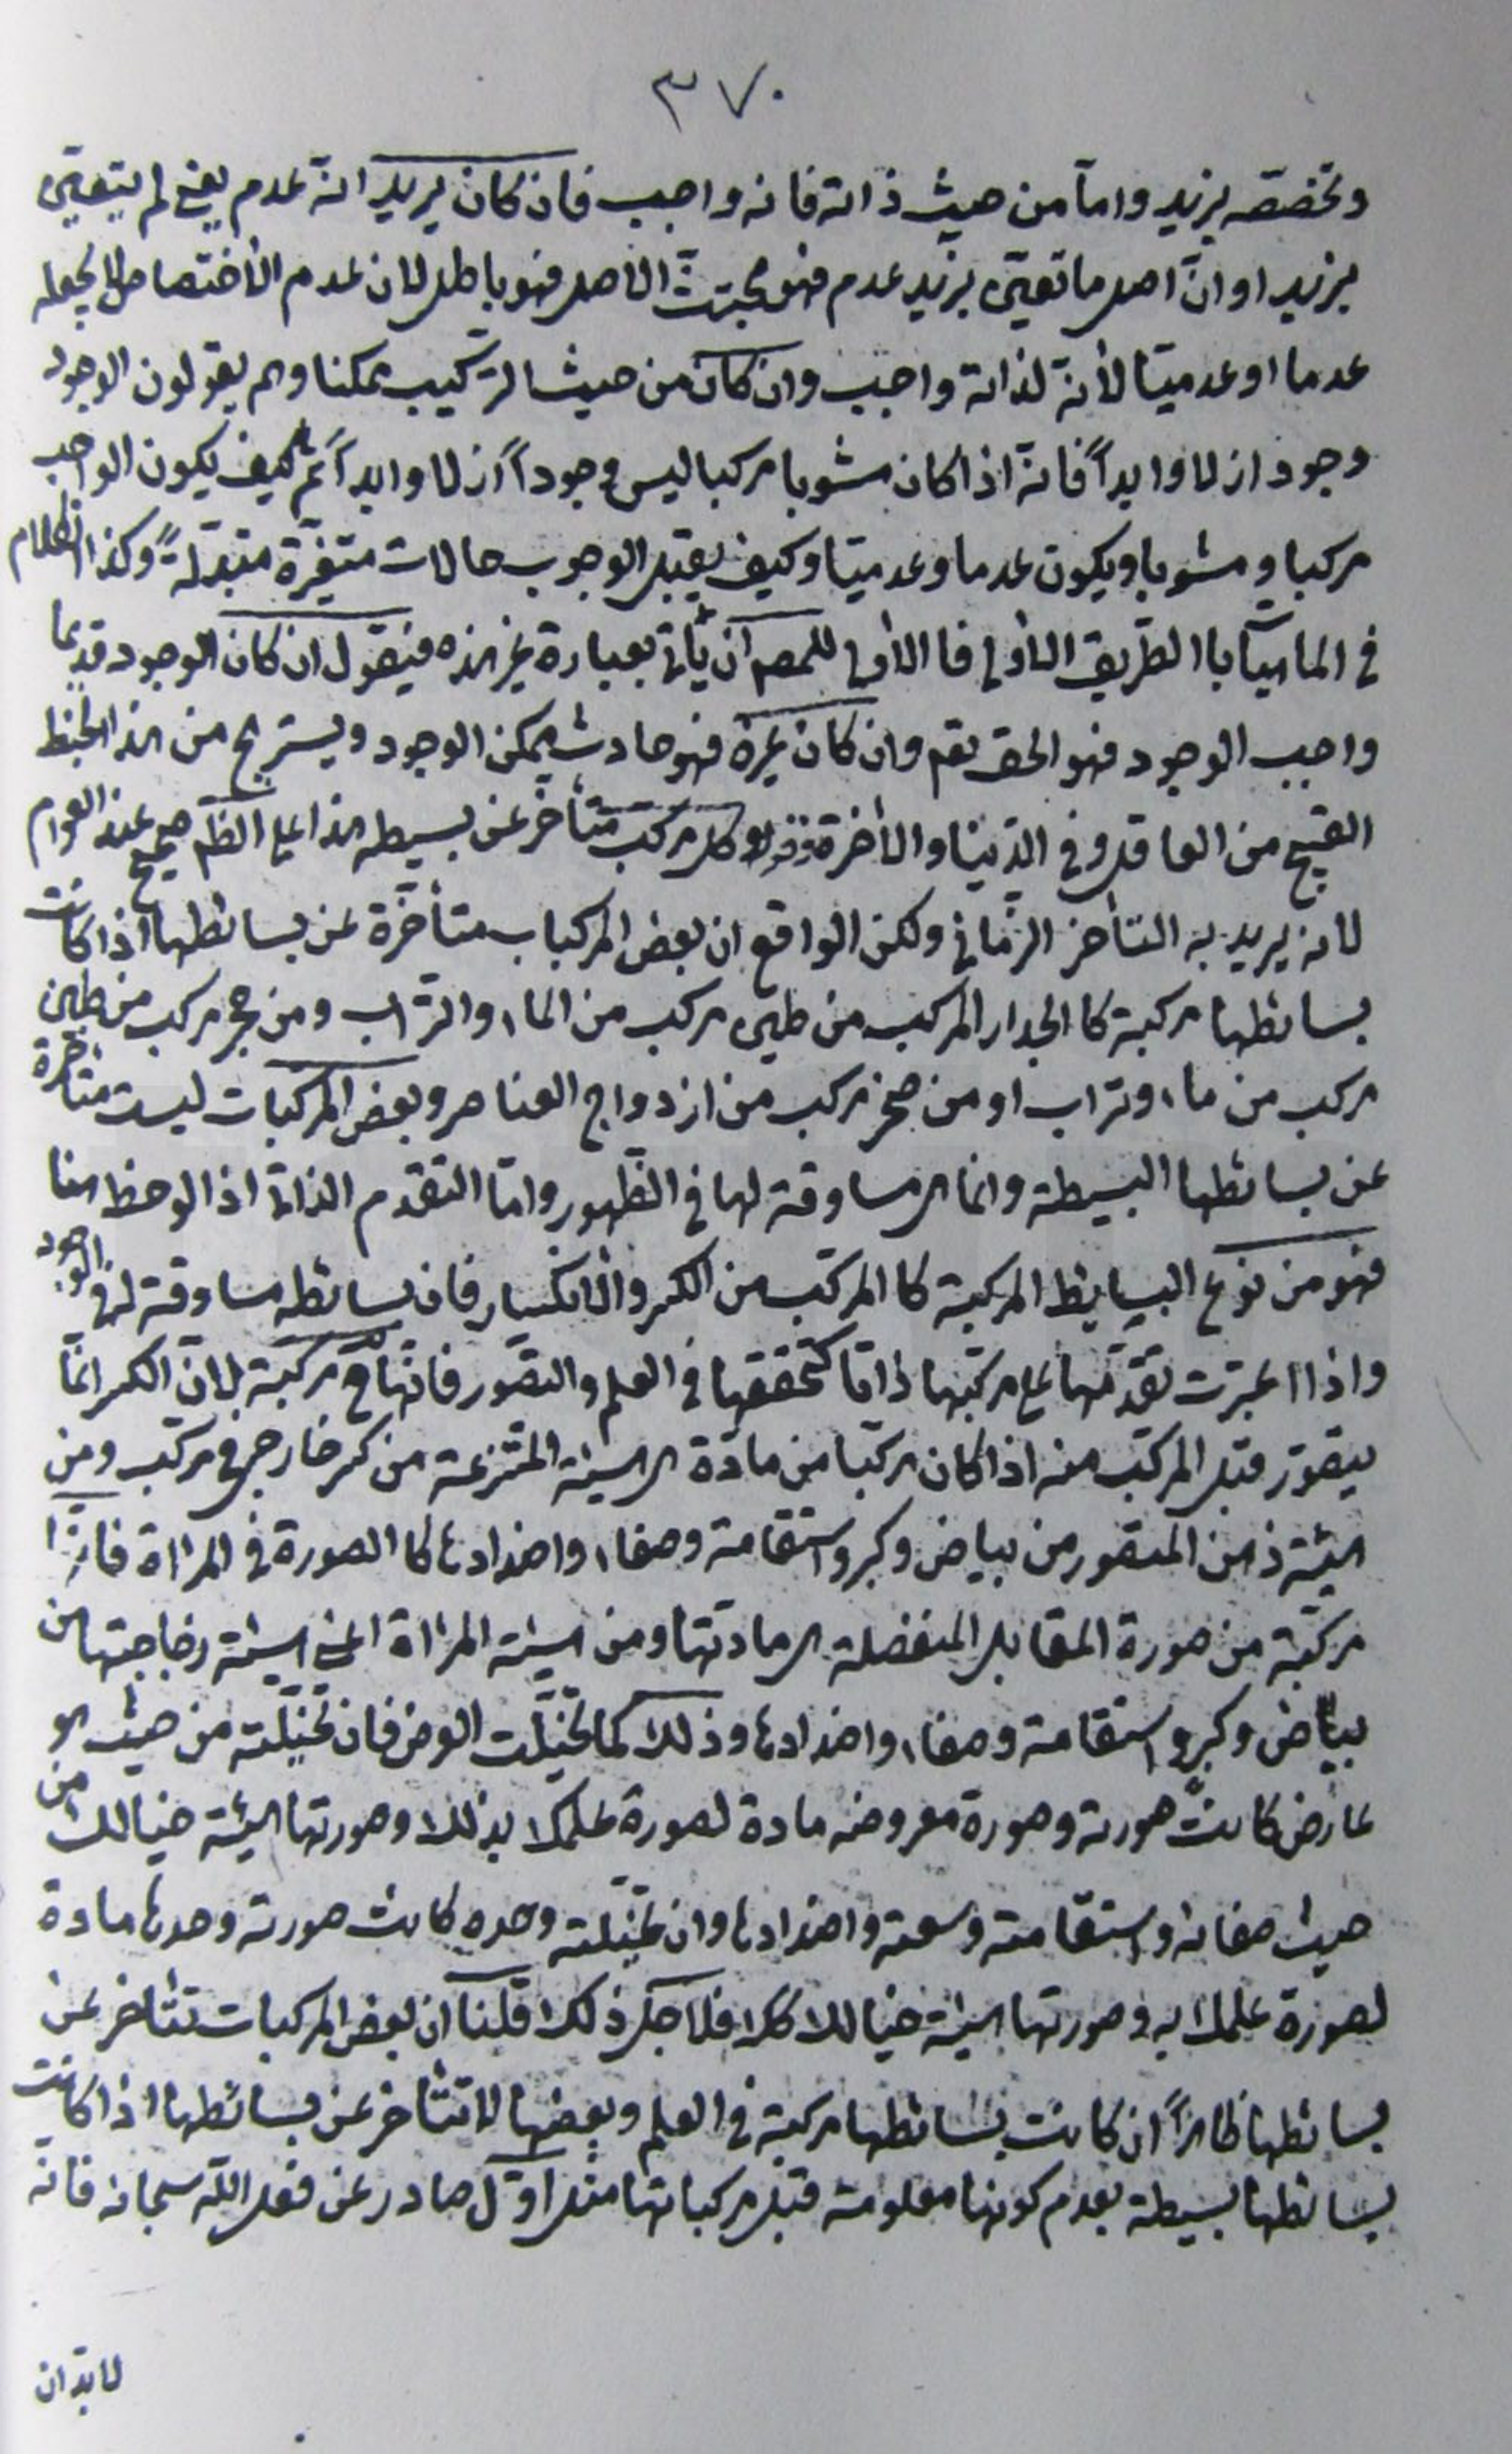 ٣٧٠
وتخصّصه بزيد وامّا من حيث ذاته فانه واجب فان كان يريد انّه عدم يعني لم يتعيّن
بزيد او انّ اصل ما تعيّن بزيد عدم فهو مجتثّ الاصل فهو باطل لان عدم الاختصاص لا يجعله
عدما او عدميّا لأنّه لذاته واجب وان كان من حيث التركيب ممكنا وهم يقولون الوجود
وجود ازلا وابداً فانّه اذا كان مشوبا مركبا ليس وجوداً ازلا وابداً ثم كيف يكون الواجب
مركبا ومشوبا ويكون عدما وعدميّا وكيف يقبل الوجوب حالات متغيّرة متبدّلةً وكذا الكلام
في الماهيّة باالطريق الاولى فاالاولى للمصـ ان يأتي بعبارة غير هذه فيقول ان كان الوجود قديما
واجب الوجود فهو الحق تعم وان كان غيره فهو حادث ممكن الوجود ويستريح من هذا الخبط
القبيح من العاقل في الدّنيا والأخرة وقوله وكل مركب متأخر عن بسيطه هذا على الظّم صحيح عند العوام
لانه يريد به التأخر الزّماني ولكن الواقع ان بعض المركبات متأخرة عن بسائطها اذا كانت
بسائطها مركبة كاالجدار المركب من طين مركب من الماء والتّراب ومن حجر مركب من طين
مركب من ماء وتراب او من صخر مركب من ازدواج العناصر وبعض المركبات ليست متأخرة
عن بسائطها البسيطة وانما هي مساوقة لها في الظّهور وامّا التقدم الذاتي اذا لوحظ هنا
فهو من نوع البسايط المركبة كاالمركب من الكسر والانكسار فان بسائطه مساوقة له في الوجود
واذا اعتبرت تقدّمها على مركبّها ذاتا كتحققها في العلم والتصوّر فانّها ح مركبة لانّ الكسر انّما
يتصوّر قبل المركّب منه اذا كان مركّبا من مادّة هي الهيئة المنتزعة من كسر خارجي مركب ومن
هيئة ذهن المتصور من بياض وكبر واستقامة وصفاء واضدادها كاالصورة في المرااة فانّها
مركّبة من صورة المقابل المنفصلة هي مادتها ومن هيئة المرااة اعني هيئة زجاجتها من
بياض وكبر واستقامة وصفاء واضدادها وذلك كما تخيّلت العرض فان تخيّلته من حيث هو
عارض كانت صورته وصورة معروضه مادة لصورة علمك بذلك وصورتها هيئة خيالك من
حيث صفائه واستقامته وسعته واضدادها وان تخيّلته وحده كانت صورته وحدها مادة
لصورة علمك به وصورتها هيئة خيالك كك فلاجل ذلك قلنا ان بعض المركبات تتأخر عن
بسائطها ظاهراً ان كانت بسائطها مركبة في العلم وبعضها لا تتأخر عن بسائطها اذا كانت
بسائطها بسيطة بعدم كونها معلومة قبل مركباتها مثل اوّل صادر عن فعل الله سبحانه فانّه
لا بدّ ان